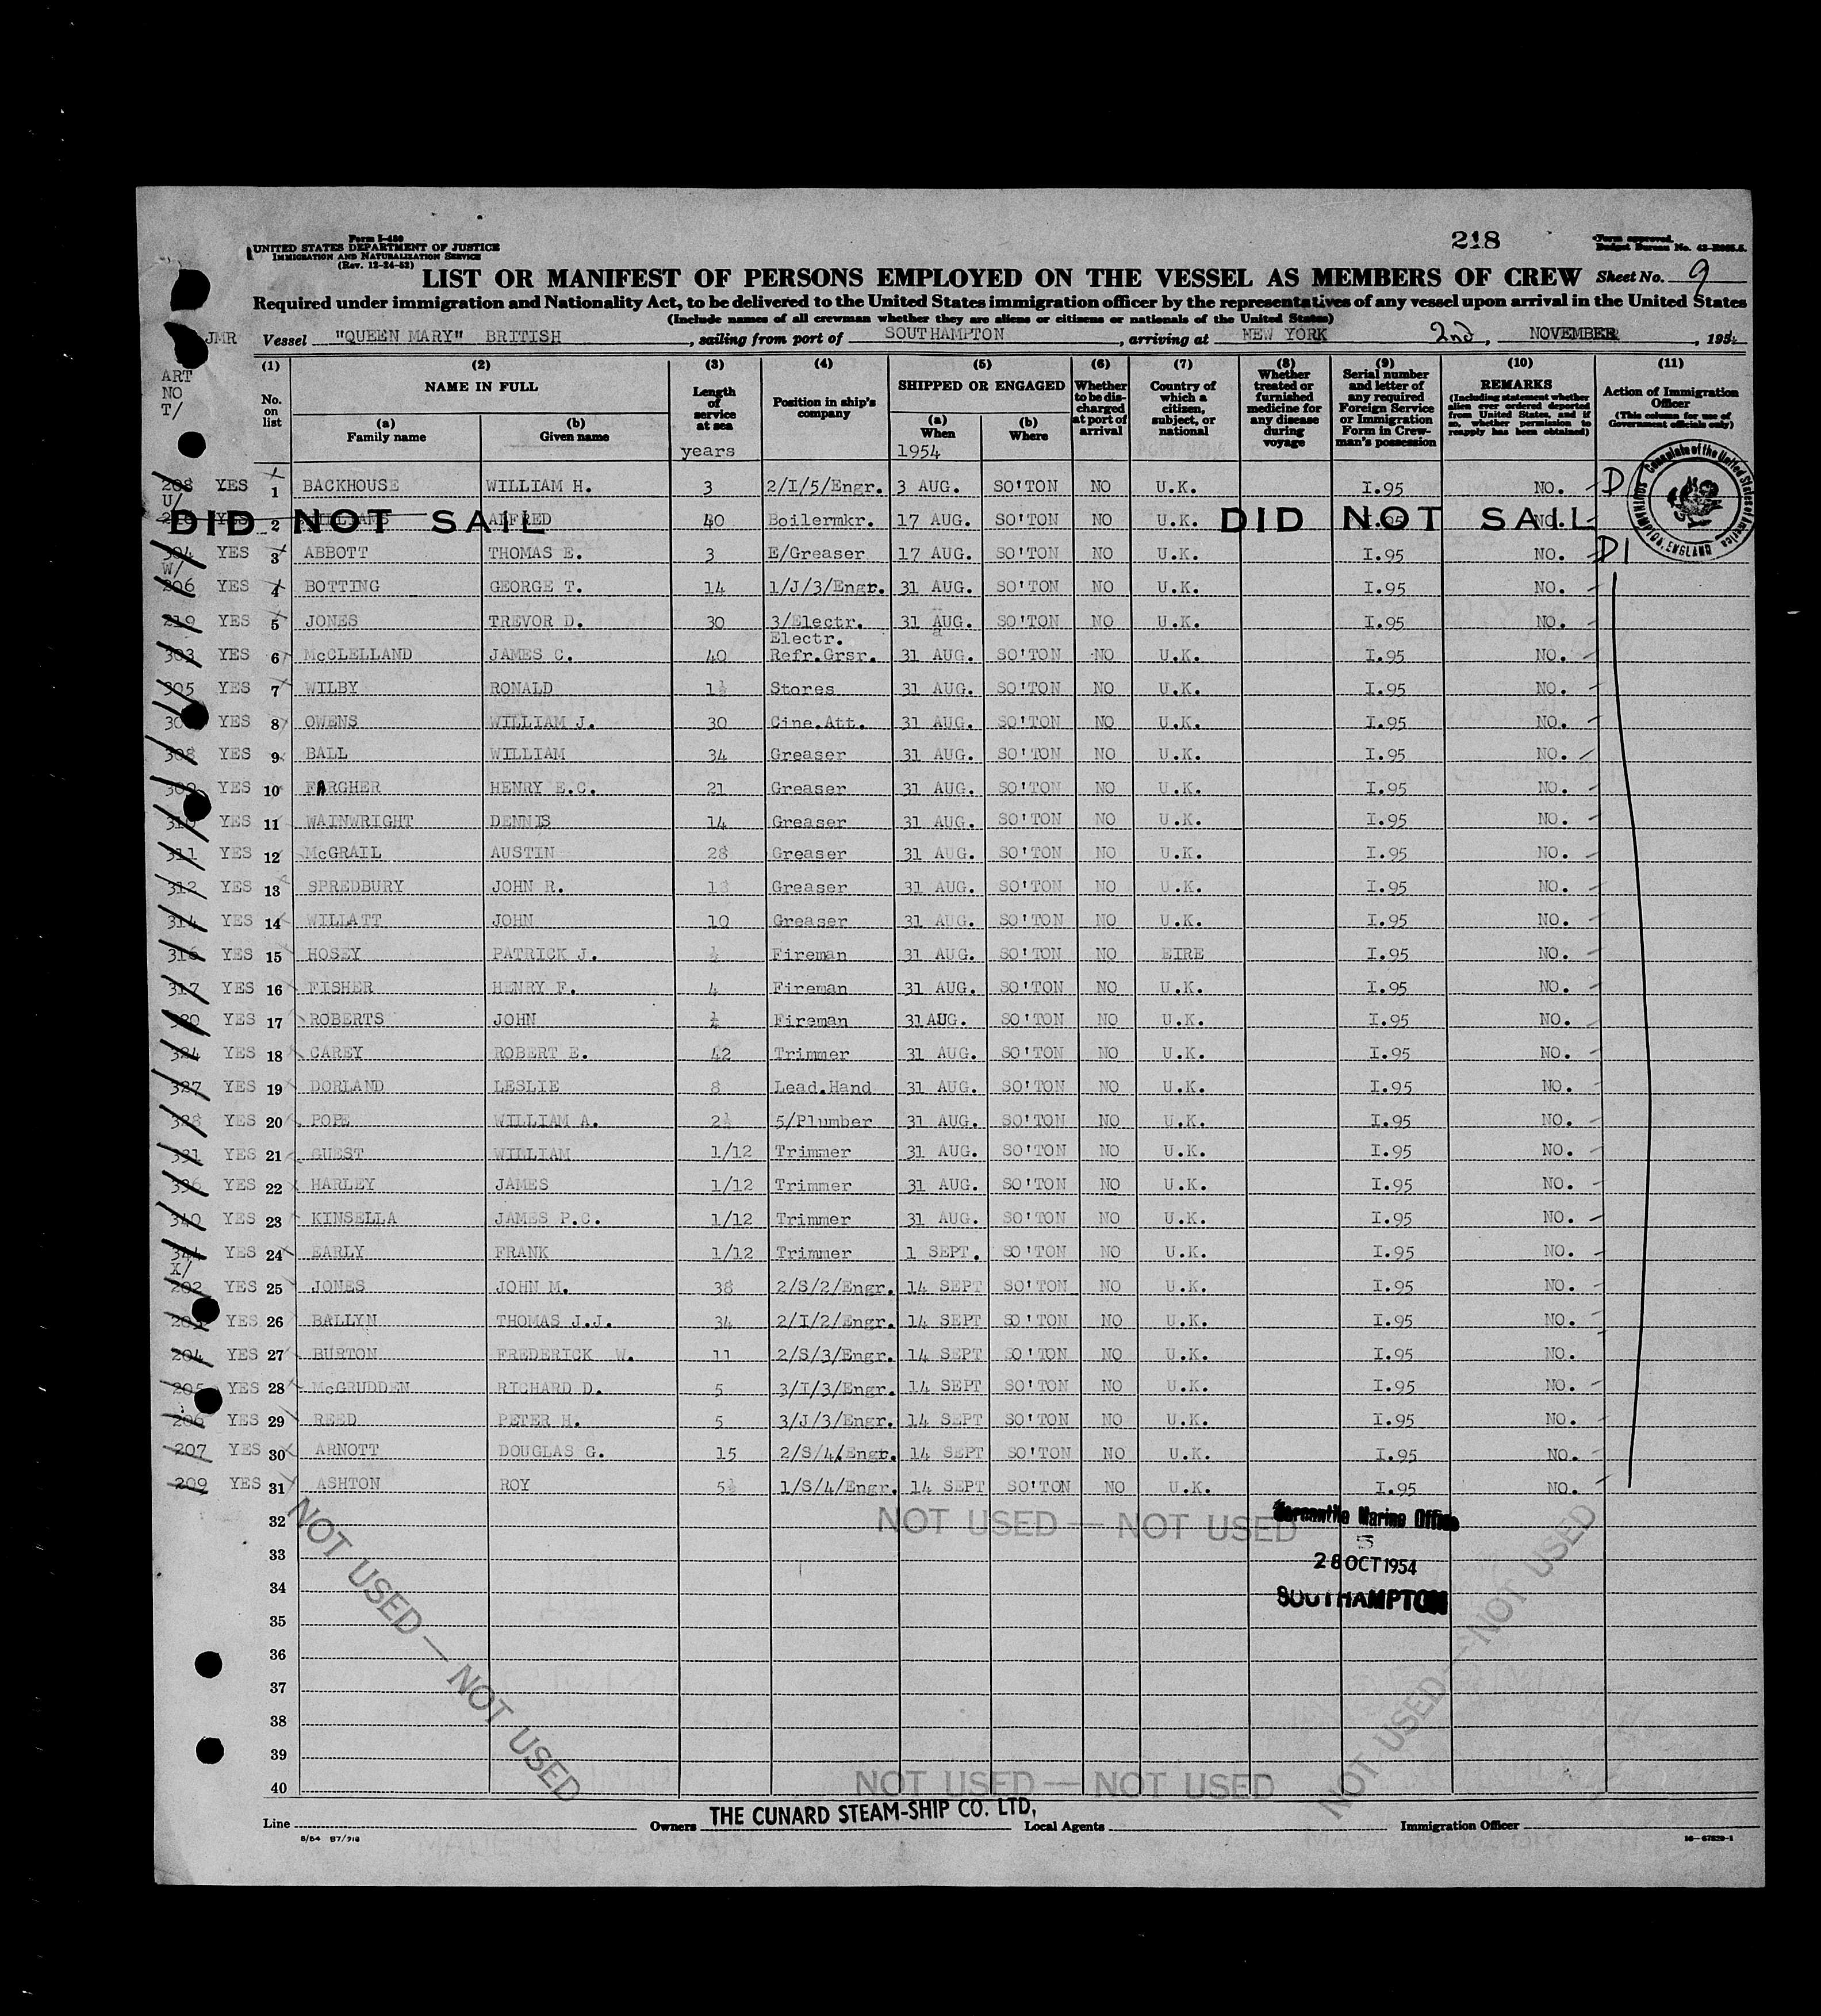 Form I-480
UNITED STATES DEPARTMENT OF JUSTICE
IMMIGRATION AND NATURALIZATION SERVICE
(Rev. 12-24-52)
218
Form approved.
Budget Bureau No.
LIST OR MANIFEST OF PERSONS EMPLOYED ON THE VESSEL AS MEMBERS OF CREW Sheet No. 9
Required under immigration and Nationality Act, to be delivered to the United States immigration officer by the representatives of any vessel upon arrival in the United States
(Include names of all crewman whether they are aliens or citizens or nationals of the United States)
JMR Vessel "QUEEN MARY" BRITISH, sailing from port of SOUTHAMPTON, arriving at NEW YORK 2nd, NOVEMBER, 1954
ART
NO
T/
(1) No. on list
(2) NAME IN FULL (a) Family name (b) Given name
(3) Length of service at sea years
(4) Position in ship's company
(5) SHIPPED OR ENGAGED (a) When (b) Where 1954
(6) Whether to be discharged at port of arrival
(7) Country of which a citizen, subject, or national
(8) Whether treated or furnished medicine for any disease during voyage
(9) Serial number and letter of any required Foreign Service or Immigration Form in Crewman's possession
(10) REMARKS (Including statement whether alien ever ordered deported from United States, and if so, whether permission to reapply has been obtained)
(11) Action of Immigration Officer (This column for use of Government officials only)
208 YES 1 BACKHOUSE WILLIAM H. 3 2/I/5/Engr. 3 AUG. SO'TON NO U.K. I.95 NO. D
U/
YES 2 WILLIAMS ALFRED 40 Boilermkr. 17 AUG. SO'TON NO U.K. I.95 NO.
DID NOT SAIL DID NOT SAIL
304 YES 3 ABBOTT THOMAS E. 3 E/Greaser 17 AUG. SO'TON NO U.K. I.95 NO. D1
W/
206 YES 4 BOTTING GEORGE T. 14 1/J/3/Engr. 31 AUG. SO'TON NO U.K. I.95 NO.
219 YES 5 JONES TREVOR D. 30 3/Electr. 31 AUG. SO'TON NO U.K. I.95 NO.
Electr.
303 YES 6 McCLELLAND JAMES C. 40 Refr.Grsr. 31 AUG. SO'TON NO U.K. I.95 NO.
305 YES 7 WILBY RONALD 1½ Stores 31 AUG. SO'TON NO U.K. I.95 NO.
YES 8 OWENS WILLIAM J. 30 Cine.Att. 31 AUG. SO'TON NO U.K. I.95 NO.
308 YES 9 BALL WILLIAM 34 Greaser 31 AUG. SO'TON NO U.K. I.95 NO.
309 YES 10 FARGHER HENRY E.C. 21 Greaser 31 AUG. SO'TON NO U.K. I.95 NO.
310 YES 11 WAINWRIGHT DENNIS 14 Greaser 31 AUG. SO'TON NO U.K. I.95 NO.
311 YES 12 McGRAIL AUSTIN 28 Greaser 31 AUG. SO'TON NO U.K. I.95 NO.
312 YES 13 SPREDBURY JOHN R. 18 Greaser 31 AUG. SO'TON NO U.K. I.95 NO.
314 YES 14 WILLATT JOHN 10 Greaser 31 AUG. SO'TON NO U.K. I.95 NO.
316 YES 15 HOSEY PATRICK J. ½ Fireman 31 AUG. SO'TON NO EIRE I.95 NO.
317 YES 16 FISHER HENRY F. 4 Fireman 31 AUG. SO'TON NO U.K. I.95 NO.
320 YES 17 ROBERTS JOHN Fireman 31 AUG. SO'TON NO U.K. I.95 NO.
324 YES 18 CAREY ROBERT E. 42 Trimmer 31 AUG. SO'TON NO U.K. I.95 NO.
327 YES 19 DORLAND LESLIE 8 Lead.Hand 31 AUG. SO'TON NO U.K. I.95 NO.
328 YES 20 POPE WILLIAM A. 2½ 5/Plumber 31 AUG. SO'TON NO U.K. I.95 NO.
331 YES 21 GUEST WILLIAM 1/12 Trimmer 31 AUG. SO'TON NO U.K. I.95 NO.
336 YES 22 HARLEY JAMES 1/12 Trimmer 31 AUG. SO'TON NO U.K. I.95 NO.
340 YES 23 KINSELLA JAMES P.C. 1/12 Trimmer 31 AUG. SO'TON NO U.K. I.95 NO.
344 YES 24 EARLY FRANK 1/12 Trimmer 1 SEPT. SO'TON NO U.K. I.95 NO.
X/
202 YES 25 JONES JOHN M. 38 2/S/2/Engr. 14 SEPT SO'TON NO U.K. I.95 NO.
YES 26 BALLYN THOMAS J.J. 34 2/I/2/Engr. 14 SEPT SO'TON NO U.K. I.95 NO.
204 YES 27 BURTON FREDERICK W. 11 2/S/3/Engr. 14 SEPT SO'TON NO U.K. I.95 NO.
205 YES 28 McGRUDDEN RICHARD D. 5 3/I/3/Engr. 14 SEPT SO'TON NO U.K. I.95 NO.
206 YES 29 REED PETER H. 5 3/J/3/Engr. 14 SEPT SO'TON NO U.K. I.95 NO.
207 YES 30 ARNOTT DOUGLAS G. 15 2/S/4/Engr. 14 SEPT SO'TON NO U.K. I.95 NO.
209 YES 31 ASHTON ROY 5½ 1/S/4/Engr. 14 SEPT SO'TON NO U.K. I.95 NO.
32
33
34
35
36
37
38
39
40
NOT USED — NOT USED
NOT USED — NOT USED
NOT USED — NOT USED
NOT USED — NOT USED
Mercantile Marine Office
5
28 OCT 1954
SOUTHAMPTON
Consulate of the United States of America
SOUTHAMPTON, ENGLAND
Line Owners THE CUNARD STEAM-SHIP CO. LTD, Local Agents Immigration Officer
16—67829-1